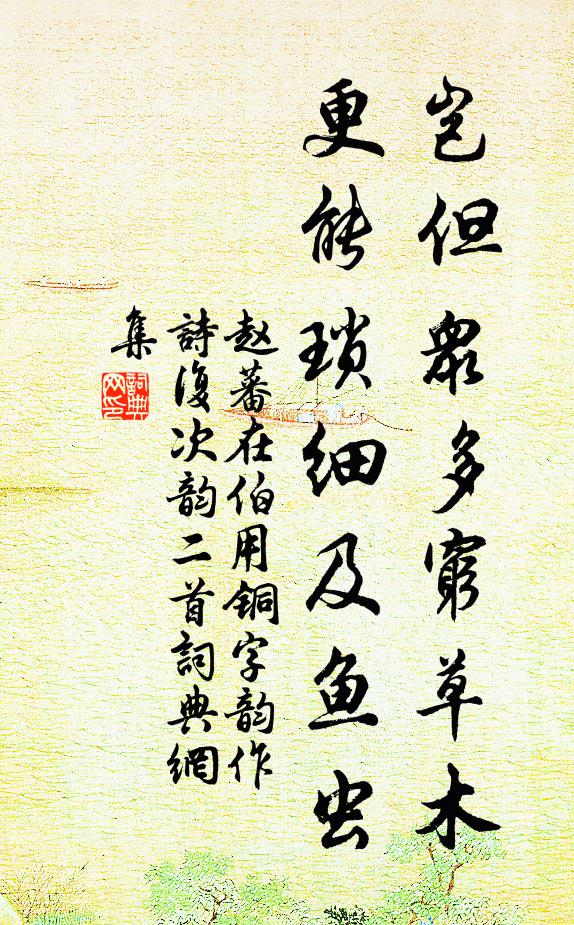 岂但眾多窮草木
更能瑣细及鱼虫
赵蕃在伯用铜字韵作
詩復次韵二首詞典網
集
詞典
网印